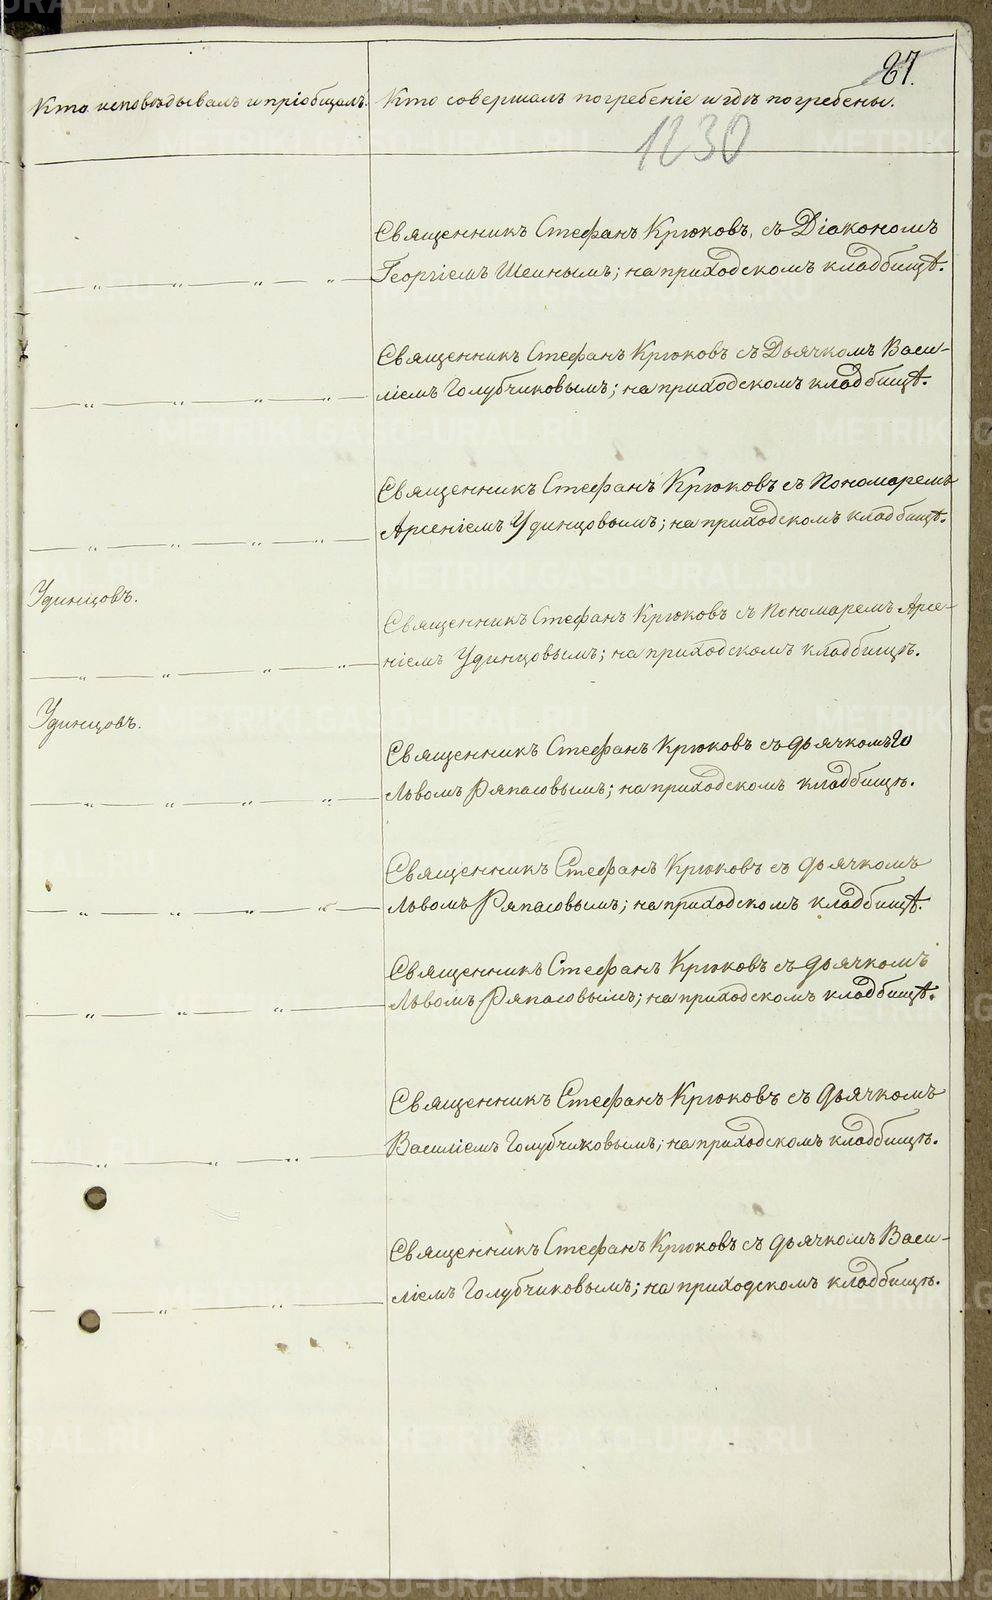 87.
Кто исповѣдывалъ и пріобщалъ. Кто совершалъ погребеніе и гдѣ погребены.
1230
Священникъ Стефанъ Крюковъ, съ Діакономъ
Георгіемъ Шеинымъ; на приходскомъ кладбищѣ.
Священникъ Стефанъ Крюковъ съ Дьячкомъ Васи-
ліемъ Голубчиковымъ; на приходскомъ кладбищѣ.
Священникъ Стефанъ Крюковъ съ Пономаремъ
Арсеніемъ Удинцовымъ; на приходскомъ кладбищѣ.
Удинцовъ.
Священникъ Стефанъ Крюковъ съ Пономаремъ Арсе-
ніемъ Удинцовымъ; на приходскомъ кладбищѣ.
Удинцовъ.
Священникъ Стефанъ Крюковъ съ дьячкомъ
Львомъ Ряпасовымъ; на приходскомъ кладбищѣ.
Священникъ Стефанъ Крюковъ съ дьячкомъ
Львомъ Ряпасовымъ; на приходскомъ кладбищѣ.
Священникъ Стефанъ Крюковъ съ дьячкомъ
Львомъ Ряпасовымъ; на приходскомъ кладбищѣ.
Священникъ Стефанъ Крюковъ съ дьячкомъ
Василіемъ Голубчиковымъ; на приходскомъ кладбищѣ.
Священникъ Стефанъ Крюковъ съ дьячкомъ Васи-
ліемъ Голубчиковымъ; на приходскомъ кладбищѣ.